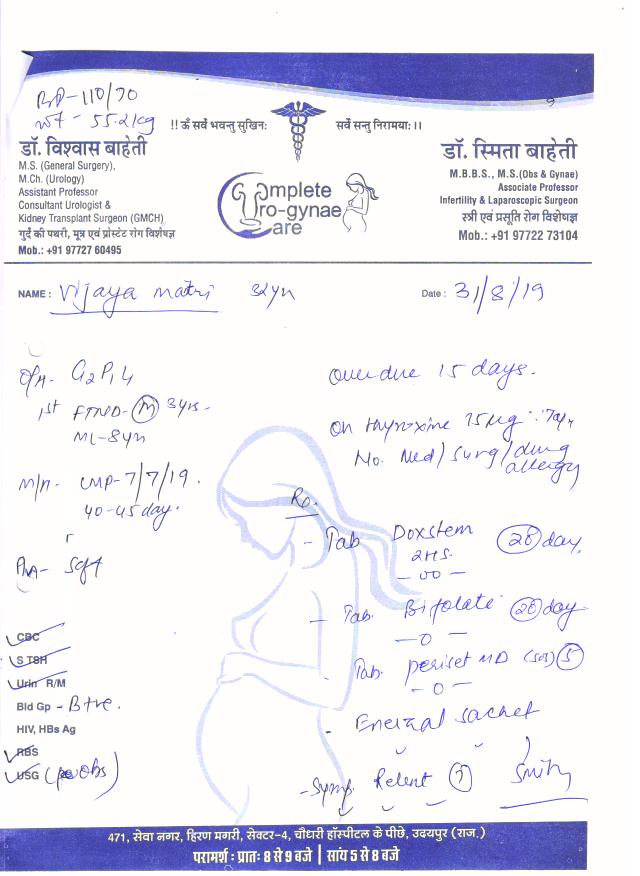 BP-110/70
wt - 55.2kg
!! ॐ सर्वे भवन्तु सुखिनः सर्वे सन्तु निरामयाः।।
डॉ. विश्वास बाहेती
M.S. (General Surgery),
M.Ch. (Urology)
Assistant Professor
Consultant Urologist &
Kidney Transplant Surgeon (GMCH)
गुर्दे की पथरी, मूत्र एवं प्रोस्टेट रोग विशेषज्ञ
Mob.: +91 97727 60495
Complete
Uro-gynae
Care
डॉ. स्मिता बाहेती
M.B.B.S., M.S.(Obs & Gynae)
Associate Professor
Infertility & Laparoscopic Surgeon
स्त्री एवं प्रसूति रोग विशेषज्ञ
Mob.: +91 97722 73104
NAME : Vijaya matri 32yr
Date : 31/8/19
O/H- G2P1L1
1st FTND- M 3yrs-
ML-8yr
M/H- LMP-7/7/19.
40-45 day.
P/A- Soft
CBC
S TSH
Urin R/M
Bld Gp - B+ve.
HIV, HBs Ag
RBS
USG (Obs)
Overdue 15 days.
On thyroxine 75µg
No. Med/Surg/drug
allergy
Rx.
- Tab Doxstem 20 day,
2HS.
- 00 -
- Tab. Bifolate 20 day
- 0 -
- Tab. periset MD (SOS) 5
- 0 -
- Enerzal sachet
- Symp. Relent
471, सेवा नगर, हिरण मगरी, सेक्टर-4, चौधरी हॉस्पीटल के पीछे, उदयपुर (राज.)
परामर्श : प्रातः 8 से 9 बजे | सांय 5 से 8 बजे